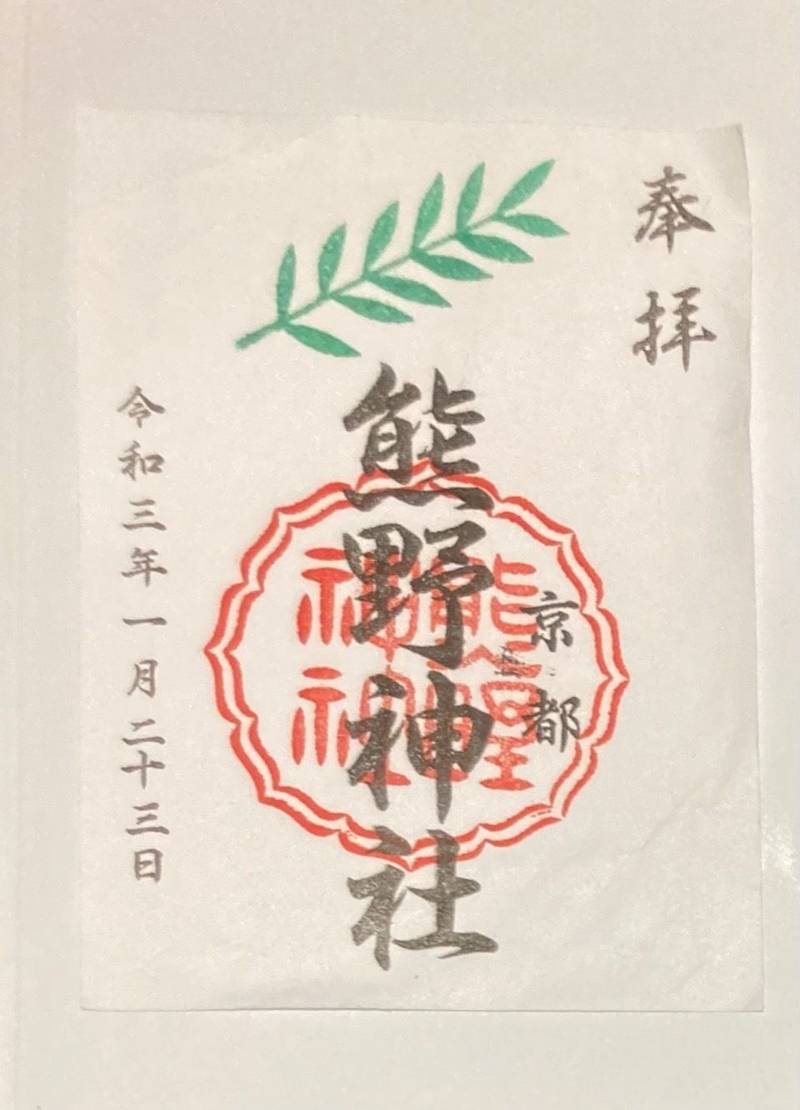 奉拝
京都
熊野神社
熊野神社
令和三年一月二十三日